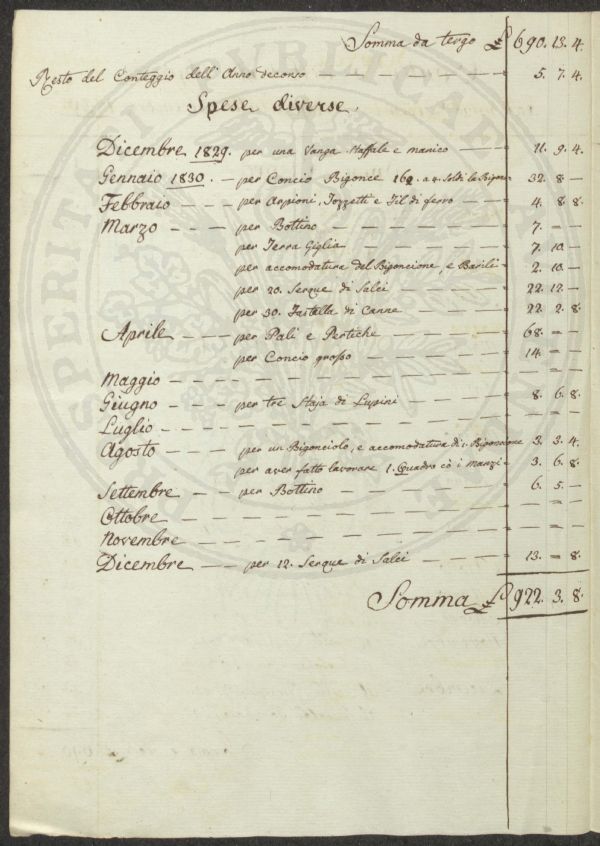 Somma da tergo £ 690. 13. 4.
Resto del Conteggio dell'Anno decorso — 5. 7. 4.
Spese diverse.
Dicembre 1829. per una Vanga Staffale e manico — 11. 9. 4.
Gennaio 1830. — per Concio Bigonce 162. a 4. Soldi la — 32. 8 —
Febbraio — per Arpioni, Tozzetti e Fil di ferro — 4. 8. 8.
Marzo — per Bottino — 7. — —
per Terra Giglia — 7. 10. —
per accomodatura del Bigoncione, e Barili — 2. 10 —
per 20. Serque di Salci — 22. 12 —
per 30. Fastella di Canne — 22. 2. 8.
Aprile — per Pali e Pertiche — 68. — —
per Concio grosso — 14. — —
Maggio — — —
Giugno — per tre Staja di Lupini — 8. 6. 8.
Luglio — — —
Agosto — per un Bigonciolo, e accomodatura di 1. Bigoncione 3. 3. 4.
per aver fatto lavorare 1. Quadro cò i Manzi — 3. 6. 8.
Settembre — per Bottino — 6. 5. —
Ottobre — — —
Novembre — — —
Dicembre — per 12. Serque di Salci — 13. — 8.
Somma £ 922. 3. 8.